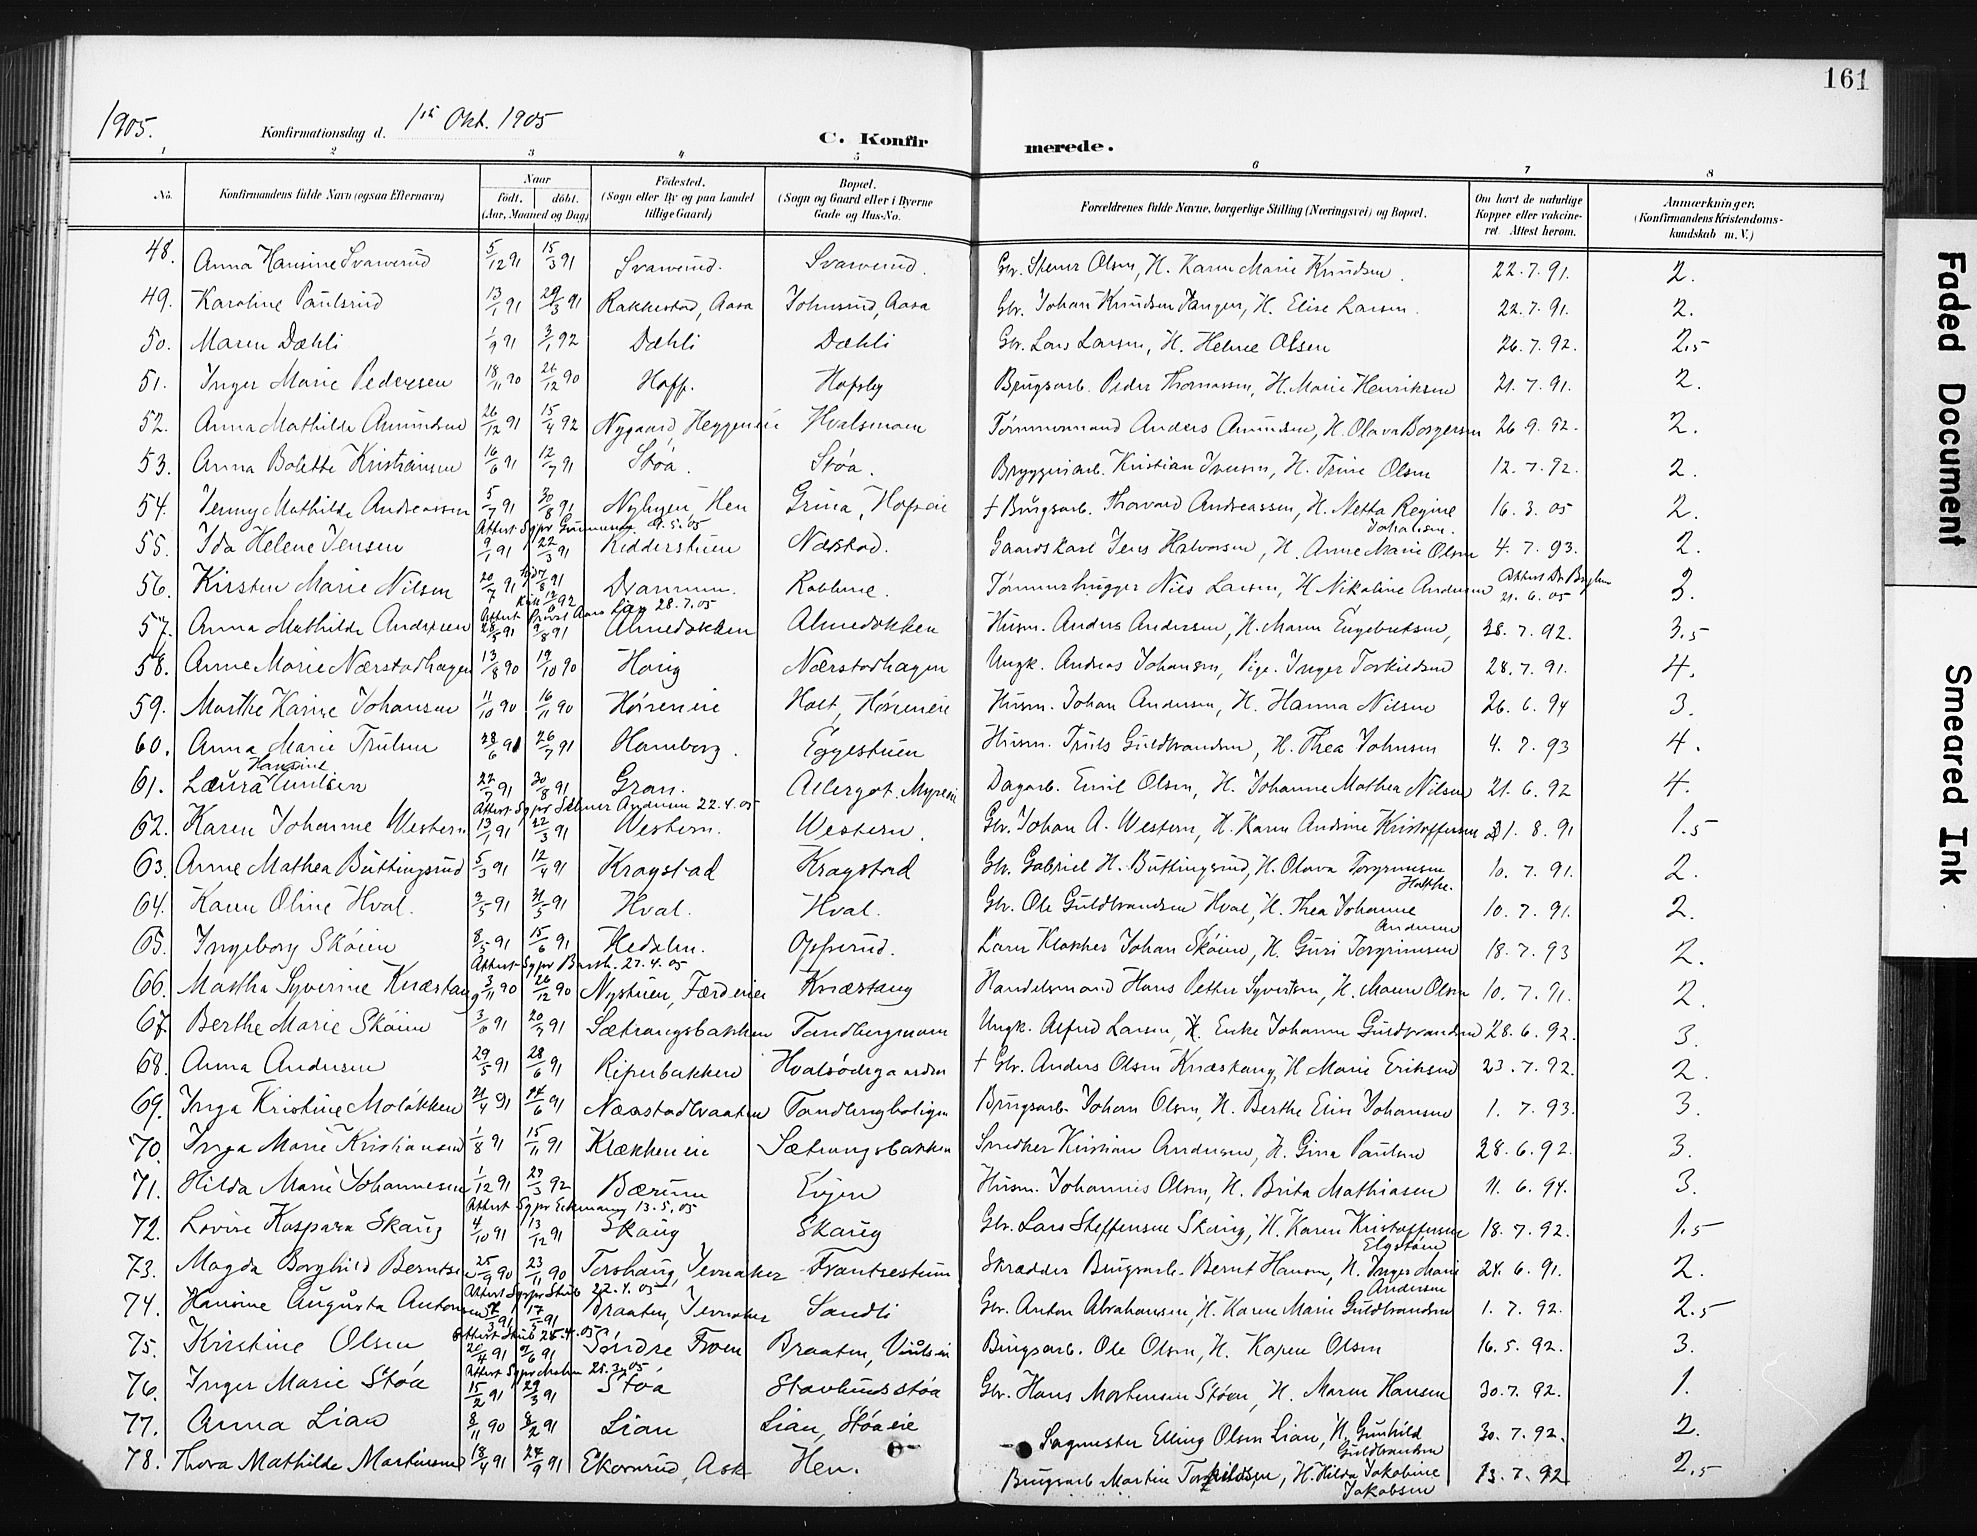 161
1905.
Konfirmationsdag d. 1ste Okt. 1905
C. Konfirmerede.
1 2 3 4 5 6 7 8
No. Konfirmandens fulde Navn (ogsaa Efternavn) Naar født. døbt. (Aar, Maaned og Dag) Fødested. (Sogn eller By og paa Landet tillige Gaard) Bopæl. (Sogn og Gaard eller i Byerne Gade og Hus-No. Forældrenes fulde Navne, borgerlige Stilling (Næringsvei) og Bopæl. Om havt de naturlige Kopper eller vakcineret. Attest herom. Anmærkninger. (Konfirmandens Kristendomskundskab m.V.)
48. Anna Hansine Svarverud 5/12 91 15/3 91 Svarverud. Svarverud. Gbr. Olsen, H. Karen Marie Knudsen. 22.7.91. 2.
49. Karoline Paulsrud 13/1 91 29/3 91 Rakkestad, Aasa Johnsrud, Aasa Gbr. Johan Knudsen, H. Elise Larsen. 22.7.91. 2.
50. Maren Dæhli 1/9 91 3/1 92 Dæhli Dæhli Gbr. Lars Larsen, H. Helene Olsen 26.7.92. 2.5
51. Inger Marie Pedersen 18/11 90 26/12 90 Hoff. Hofsby Brugsarb. Peder Thomassen, H. Marie Henriksen 21.7.91. 2.
52. Anna Mathilde Amundsen 26/12 91 15/4 92 Nygaard, Heggeneie Hvalsmoen Tømmermand Anders Amundsen, H. Olava Borgersen 26.9.92. 2.
53. Anna Bolette Kristiansen 16/6 91 12/7 91 Støa. Støa. Bryggeriarb. Kristian Iversen, H. Trine Olsen 12.7.92. 2.
54. Jenny Mathilde Andreassen 5/7 91 30/8 91 Nybyen, Hen Grina, Hofseie † Brugsarb. Thorvard Andreassen, H. Netta Regine Johansen. 16.3.05 2.
55. Ida Helene Jensen 9/1 91 22/3 91 Ridderstuen Nærstad. Gaardskarl Jens Halvorsen, H. Anne Marie Olsen 4.7.93. 2.
56. Kirsten Marie Nilsen 20/7 91 Drammen. Tømmerhugger Nils Larsen, H. Nikoline Andersen Attest Dr. 21.6.05 3.
Attest Provst Aars Lian 28.7.05
57. Anna Mathilde Andersen 28/5 91 9/8 91 Almedokken Almedokken Husm. Anders Andersen, H. Maren Engebretsen, 28.7.92. 3.5
58. Anne Marie Nærstadhagen 13/8 90 19/10 90 Haug Nærstadhagen Ungk. Andreas Johansen, Pige. Inger Torkildsen 28.7.91. 4.
59. Marthe Karine Johansen 11/10 90 16/11 90 Høreneie Holt, Høreneie Husm. Johan Andersen, H. Hanna Nilsen 26.6.94 3.
60. Anna Marie Trulsen 28/6 91 26/7 91 Homborg. Eggestuen Husm. Truls Guldbrandsen, H. Thea Johnsen 4.7.93 4.
61. Laura Hansine Emilsen 22/7 91 30/8 91 Gran. Dagarb. Emil Olsen, H. Johanne Mathea Nilsen 21.6.92 4.
62. Karen Johanne Western 13/1 91 22/3 91 Western. Western. Gbr. Johan A. Western, H. Karen Andrine Kristoffersen 21.8.91 1.5
63. Anne Mathea Buttingsrud 5/3 91 12/4 91 Kragstad Kragstad Gbr. Gabriel H. Buttingsrud, H. Olava Torgrimsen 10.7.91. 2.
64. Karen Oline Hval. 3/5 91 31/5 91 Hval. Hval. Gbr. Ole Guldbrandsen Hval, H. Thea Johanne Andersen 10.7.91. 2.
65. Ingeborg Skøien 8/5 91 15/6 91 Hedalen. Opperud. Lærer Klokker Johan Skøien, H. Guri Torgrimsen 18.7.93 2.
66. Martha Syverine Knæstang 3/11 90 26/12 90 Nystuen, Færdeneie Knæstang Handelsmand Hans Petter Syvertsen, H. Maren Olsen 10.7.91. 2.
67. Berthe Marie Skøien 3/6 91 20/7 91 Sætrangsbakken Tandbergmoen Ungk. Alfred Larsen, H. Enke Johanne Guldbrandsen 28.6.92. 3.
68. Anna Andersen 29/5 91 28/6 91 Riperbakken Hvalsødegaarden † Gbr. Anders Olsen Knæstang, H Marie Eriksen 23.7.92. 2.
69. Inga Kristine Moløkken 21/4 91 14/6 91 Næstadbraaten Tandbergboligen Brugsarb. Johan Olsen, H. Berthe Elin Johansen 1.7.93. 3.
70. Inga Marie Kristiansen 1/8 91 15/11 91 Klækkeneie Sætrangsbakken Snedker Kristian Andersen, H. Gina Paulsen 28.6.92. 3.
71. Hilda Marie Johannesen 1/12 91 27/3 92 Bærum Evjen Husm. Johannes Olsen, H. Brita Mathiasen 11.6.94. 3.
72. Lovise Kaspara Skaug 4/10 91 13/12 91 Skaug Skaug Gbr. Lars Steffensen Skaug, H. Karen Kristoffersen Elgstøen 18.7.92. 1.5
73. Magda Borghild Berntsen 25/9 90 23/11 90 Torshaug, Jevnaker Frantzestuen Skrædder Brugsarb. Bernt Hansen, H. Inger Marie Andersen 24.6.91. 2.
74. Hansine Augusta Antonsen 17/5 91 Braaten, Jevnaker Sandli Gbr. Anton Abrahamsen, H. Karen Marie Guldbrandsen 1.7.92. 2.5
75. Kristine Olsen 20/4 91 7/6 91 Søndre Froen Braaten, Brugsarb. Ole Olsen, H. Karen Olsen 16.5.92. 3.
76. Inger Marie Støa 15/2 91 29/3 91 Støa Stavlundsstøa Gbr. Hans Mortensen Støen, H. Maren Hansen 30.7.92. 1.
77. Anna Lian 8/11 90 8/2 91 Lian Lian, Støaeie Sagmester Elling Olsen Lian, H. Gunhild Guldbrandsen 30.7.92. 2.
78. Thora Mathilde Martinsen 18/4 91 27/9 91 Ekornrud, Ask Hen. Brugsarb Martin Torkildsen, H. Hilda Jakobine Jakobsen 13.7.92 2.5
Faded Document
Smeared Ink